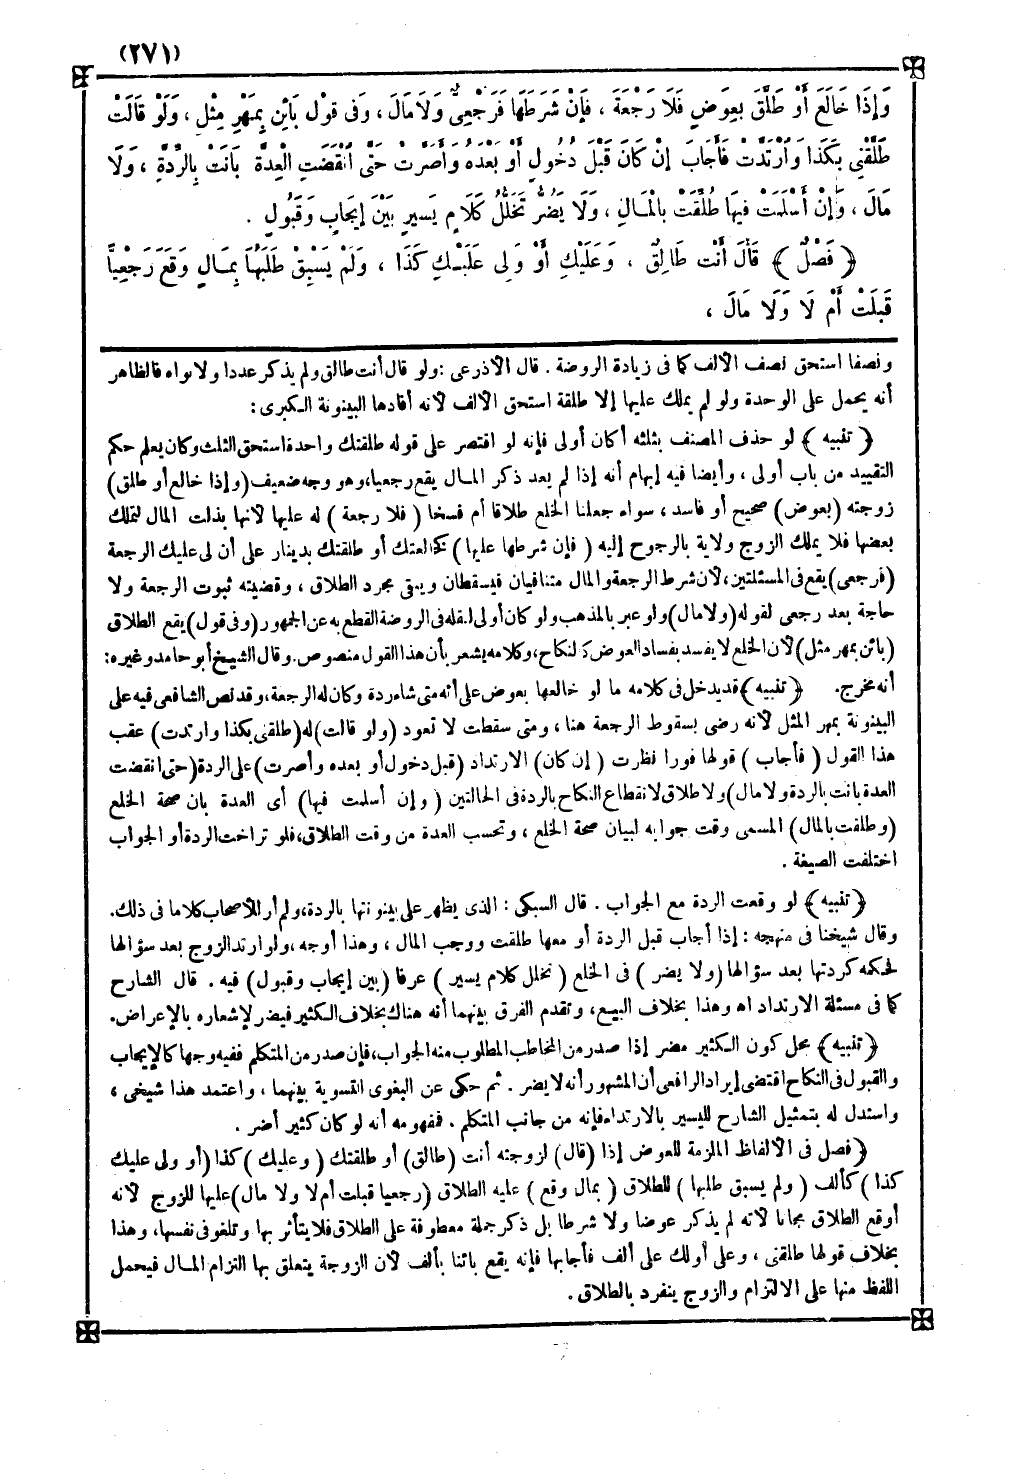 (٢٧١)
وَإِذَا خَالَعَ أَوْ طَلَّقَ بِعِوَضٍ فَلَا رَجْعَةَ ، فَإِنْ شَرَطَهَا فَرَجْعِىٌّ وَلَامَالَ ، وَفِى قَوْلٍ بَائِنٌ بِمَهْرِ مِثْلٍ ، وَلَوْ قَالَتْ
طَلِّقْنِى بِكَذَا وَارْتَدَّتْ فَأَجَابَ إِنْ كَانَ قَبْلَ دُخُولٍ أَوْ بَعْدَهُ وَأَصَرَّتْ حَتَّى انْقَضَتِ الْعِدَّةُ بَانَتْ بِالرِّدَّةِ ، وَلَا
مَالَ ، وَإِنْ أَسْلَمَتْ فِيهَا طُلِّقَتْ بِالْمَالِ ، وَلَا يَضُرُّ تَخَلُّلُ كَلَامٍ يَسِيرٍ بَيْنَ إِيجَابٍ وَقَبُولٍ .
﴿ فَصْلٌ ﴾ قَالَ أَنْتِ طَالِقٌ ، وَعَلَيْكِ أَوْ وَلِى عَلَيْكِ كَذَا ، وَلَمْ يَسْبِقْ طَلَبُهَا بِمَالٍ وَقَعَ رَجْعِيًّا
قَبِلَتْ أَمْ لَا وَلَا مَالَ ،
ونصفا استحق نصف الألف كما فى زيادة الروضة . قال الأذرعى : ولو قال أنت طالق ولم يذكر عددا ولا نواه فالظاهر
أنه يحمل على الوحدة ولو لم يملك عليها إلا طلقة استحق الألف لأنه أفادها البينونة الكبرى :
﴿ تنبيه ﴾ لو حذف المصنف بثلثه أكان أولى فإنه لو اقتصر على قوله طلقتك واحدة استحق الثلث وكان يعلم حكم
التقييد من باب أولى ، وأيضا فيه إيهام أنه إذا لم يعد ذكر المال يقع رجعيا ، وهو وجه ضعيف (وإذا خالع أو طلق)
زوجته (بعوض) صحيح أو فاسد ، سواء جعلنا الخلع طلاقا أم فسخا ( فلا رجعة ) له عليها لأنها بذلت المال لتملك
بعضها فلا يملك الزوج ولاية بالرجوح إليه ( فإن شرطها عليها ) كخالعتك أو طلقتك بدينار على أن لى عليك الرجعة
(فرجعى) يقع فى المسئلتين ، لأن شرط الرجعة والمال متنافيان فيسقطان ويبقى مجرد الطلاق ، وقضيته ثبوت الرجعة ولا
حاجة بعد رجعى لقوله (ولا مال) ولو عبر بالمذهب ولو كان أولى لنقله فى الروضة القطع به عن الجمهور (وفى قول) يقع الطلاق
(بائن بمهر مثل) لأن الخلع لا يفسد بفساد العوض كالنكاح ، وكلامه يشعر بأن هذا القول منصوص . وقال الشيخ أبو حامد وغيره :
أنه مخرج. ﴿ تنبيه ﴾ قد يدخل فى كلامه ما لو خالعها بعوض على أنه متى شاء رده وكان له الرجعة ، وقد نص الشافعى فيه على
البينونة بمهر المثل لأنه رضى بسقوط الرجعة هنا ، ومتى سقطت لا تعود (ولو قالت) له (طلقنى بكذا وارتدت) عقب
هذا القول ( فأجاب ) قولها فورا نظرت ( إن كان) الارتداد (قبل دخول أو بعده وأصرت) على الردة (حتى انقضت
العدة بانت بالردة ولا مال) ولا طلاق لانقطاع النكاح بالردة فى الحالتين ( وإن أسلمت فيها) أى العدة بان صحة الخلع
(وطلقت بالمال) المسمى وقت جوابه لبيان صحة الخلع ، وتحسب العدة من وقت الطلاق ، فلو تراخت الردة أو الجواب
اختلفت الصيغة .
﴿ تنبيه ﴾ لو وقعت الردة مع الجواب . قال السبكى : الذى يظهر على بينونتها بالردة ، ولم أر للأصحاب كلاما فى ذلك .
وقال شيخنا فى منهجه : إذا أجاب قبل الردة أو معها طلقت ووجب المال ، وهذا أوجه ، ولو ارتد الزوج بعد سؤالها
فحكمه كردتها بعد سؤالها (ولا يضر ) فى الخلع ( تخلل كلام يسير ) عرفا (بين إيجاب وقبول) فيه . قال الشارح
كما فى مسئلة الارتداد اه وهذا بخلاف البيع ، وتقدم الفرق بينهما أنه هناك بخلاف الكثير فيضر لإشعاره بالإعراض .
﴿ تنبيه ﴾ محل كون الكثير مضر إذا صدر من المخاطب المطلوب منه الجواب ، فإن صدر من المتكلم ففيه وجها كالإيجاب
والقبول فى النكاح اقتضى إيراد الرافعى أن المشهور أنه لا يضر . ثم حكى عن البغوى التسوية بينهما ، واعتمد هذا شيخى ،
واستدل له بتمثيل الشارح لليسير بالارتداد فإنه من جانب المتكلم . فمفهومه أنه لو كان كثير أضر .
﴿ فصل فى الألفاظ الملزمة للعوض إذا (قال) لزوجته أنت (طالق) أو طلقتك ( وعليك ) كذا (أو ولى عليك
كذا ) كألف ( ولم يسبق طلبها ) للطلاق ( بمال وقع ) عليه الطلاق (رجعيا قبلت أم لا ولا مال) عليها للزوج لأنه
أوقع الطلاق مجانا لأنه لم يذكر عوضا ولا شرطا بل ذكر جملة معطوفة على الطلاق فلا يتأثر بها وتلغو فى نفسها ، وهذا
بخلاف قولها طلقنى ، وعلى أولك على ألف فأجابها فإنه يقع بائنا بألف لأن الزوجة يتعلق بها التزام المال فيحمل
اللفظ منها على الالتزام والزوج ينفرد بالطلاق .